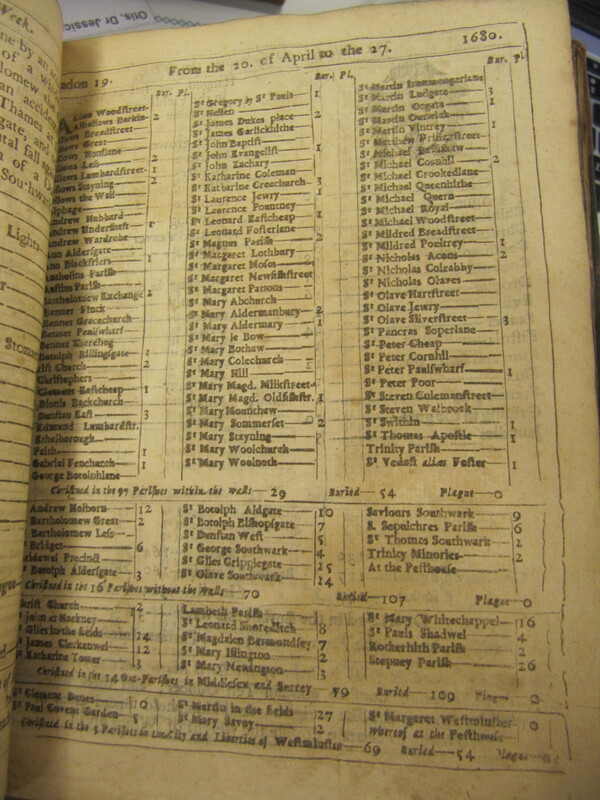 Otis, Dr Jessic
Week.
ondon 19. From the 20. of April to the 27. 1680.
Bur. Pl.
Woodstreet
Alhallows Barkin 2
Breadstreet
Great
Honylane
Less 2
Lombardstreet 1
Stayning 2
the Wall
Alphage
Andrew Hubbard
Andrew Undershaft 1
Andrew Wardrobe
Ann Aldersgate
Ann Blackfriers 1
Antholins Parish
Austins Parish
Bartholomew Exchange 2
Bennet Finck
Bennet Gracechurch
Bennet Paulswharf
Bennet Sherehog
Botolph Billingsgate 1
Christ Church 2
Christophers
Clement Eastcheap 1
Dionis Backchurch
Dunstan East 3
Edmund Lambardstr.
Ethelborough
Faith 1
Gabriel Fenchurch 1
George Botolphlane
Bur. Pl.
St Gregory by St Pauls 1
St Hellen
St James Dukes place 2
St James Garlickhithe
St John Baptist
St John Evangelist 1
St John Zachary
St Katharine Coleman
St Katharine Creechurch 3
St Laurence Jewry 1
St Laurence Pountney
St Leonard Eastcheap 1
St Leonard Fosterlane
St Magnes Parish 2
St Margaret Lothbury
St Margaret Moses
St Margaret Newfishstreet
St Margaret Pattons
St Mary Abchurch
St Mary Aldermanbury 2
St Mary Aldermary 1
St Mary le Bow
St Mary Bothaw
St Mary Colechurch
St Mary Hill
St Mary Magd. Milkstreet
St Mary Magd. Oldfishstr. 1
St Mary Mounthaw
St Mary Sommerset 2
St Mary Stayning
St Mary Woolchurch
St Mary Woolnoth
Bur. Pl.
St Martin Iremongerlane
St Martin Ludgate 3
St Martin Orgars 1
St Martin Outwich
St Martin Vintrey 1
St Matthew Fridaystreet
St Michael Bassishaw
St Michael Cornhil 2
St Michael Crookedlane
St Michael Queenhithe
St Michael Quern
St Michael Royal
St Michael Woodstreet
St Mildred Breadstreet
St Mildred Poultrey 1
St Nicholas Acons 2
St Nicholas Coleabby
St Nicholas Olaves
St Olave Hartstreet
St Olave Jewry
St Olave Silverstreet 3
St Pancras Soperlane
St Peter Cheap
St Peter Cornhil
St Peter Paulswharf 1
St Peter Poor
St Steven Colemanstreet
St Steven Walbrook
St Swithin 1
St Thomas Apostle 1
Trinity Parish
St Vedast alias Foster 1
Christned in the 97 Parishes within the Walls 29 Buried 54 Plague 0
Andrew Holborn 12
Bartholomew Great 2
Bartholomew Less
Bridget 6
Bridewel Precinct
Botolph Aldersgate 3
St Botolph Aldgate 10
St Botolph Bishopsgate 7
St Dunstan West 5
St George Southwark 4
St Giles Cripplegate 25
St Olave Southwark 14
Saviours Southwark 9
S. Sepulchres Parish 6
St Thomas Southwark 2
Trinity Minories 2
At the Pesthouse
Christned in the 16 Parishes without the Walls 70 Buried 107 Plague 0
Christ Church 2
John at Hackney
Giles in the fields 24
St James Clerkenwel 12
St Katharine Tower 3
Lambeth Parish
St Leonard Shoreditch 8
St Magdalen Bermondsey 7
St Mary Islington 2
St Mary Newington 3
St Mary Whitechappel 16
St Pauls Shadwel 4
Rotherhith Parish 2
Stepney Parish 26
Christned in the 14 Out-Parishes in Middlesex and Surrey 59 Buried 109 Plague 0
St Clement Danes 10
St Paul Covent Garden 5
St Martin in the fields 27
St Mary Savoy 2
St Margaret Westminster
Whereof at the Pesthouse 0
Christned in the 5 Parishes in the City and Liberties of Westminster 69 Buried 54 Plague 0